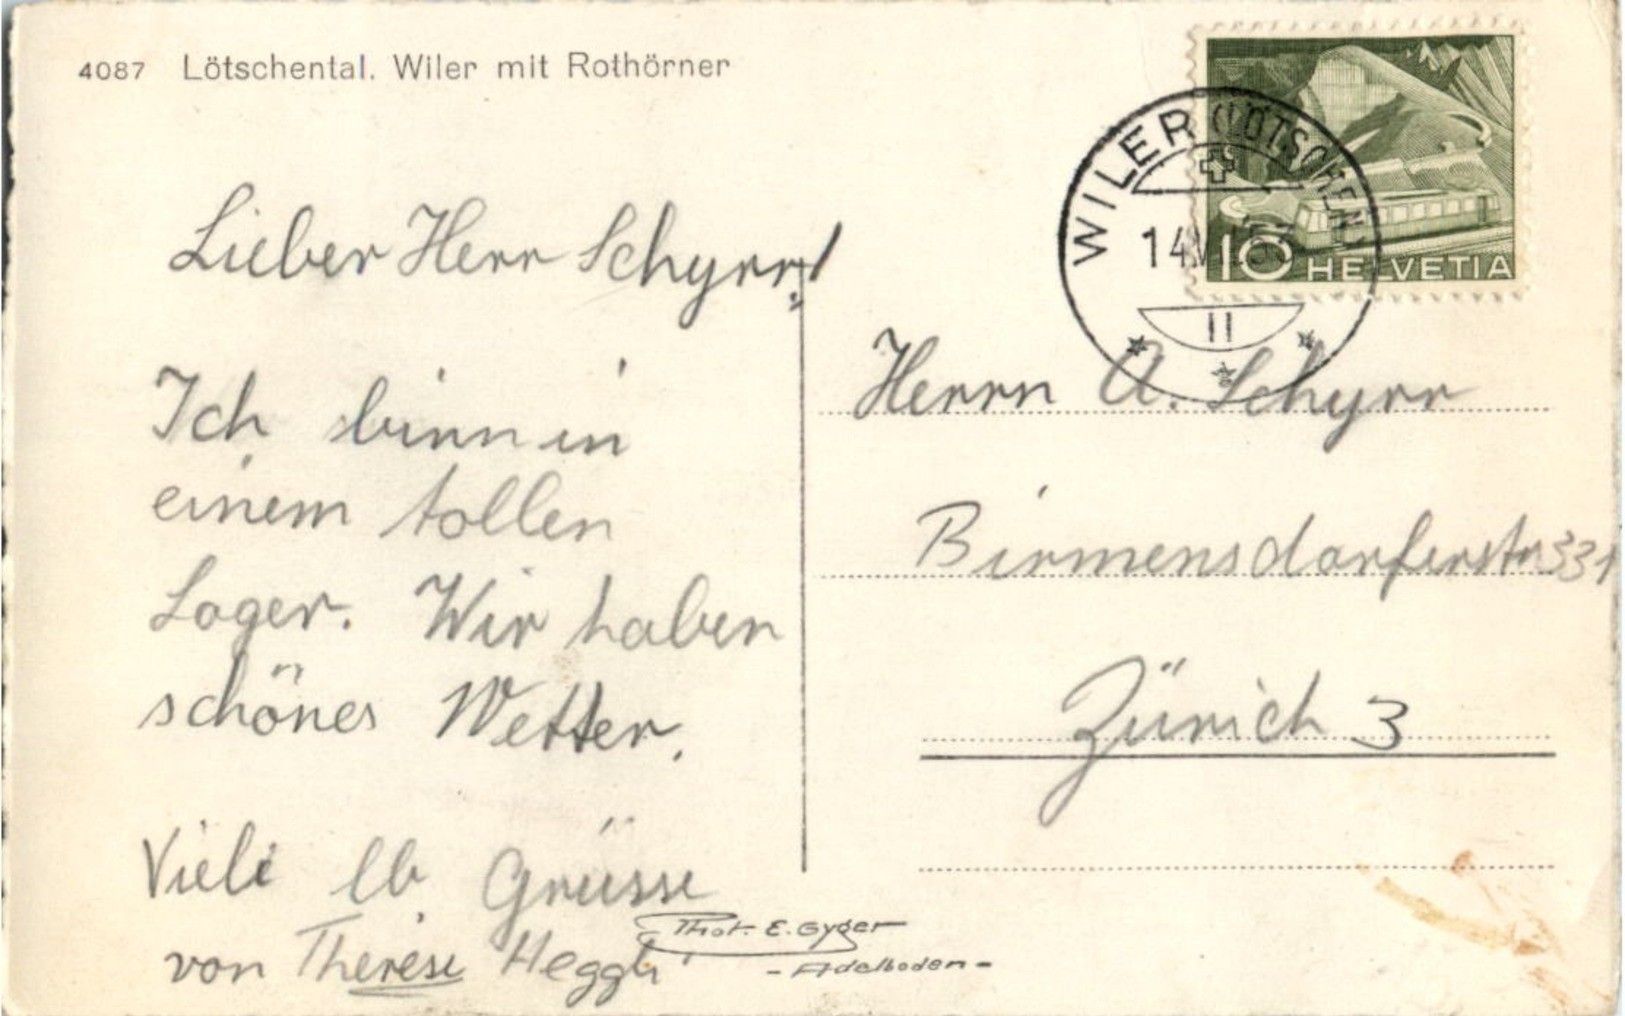 4087 Lötschental. Wiler mit Rothörner
Lieber Herr Schyrr!
Ich binn in
einem tollen
Lager. Wir haben
schönes Wetter.
Vieli lb Grüsse
von Therese Heggli
Phot. E. Gyger
- Adelboden -
WILER (LÖTSCHEN)
14.V
11
10 HELVETIA
Herrn A. Schyrr
Birmensdorferstr 331
Zürich 3